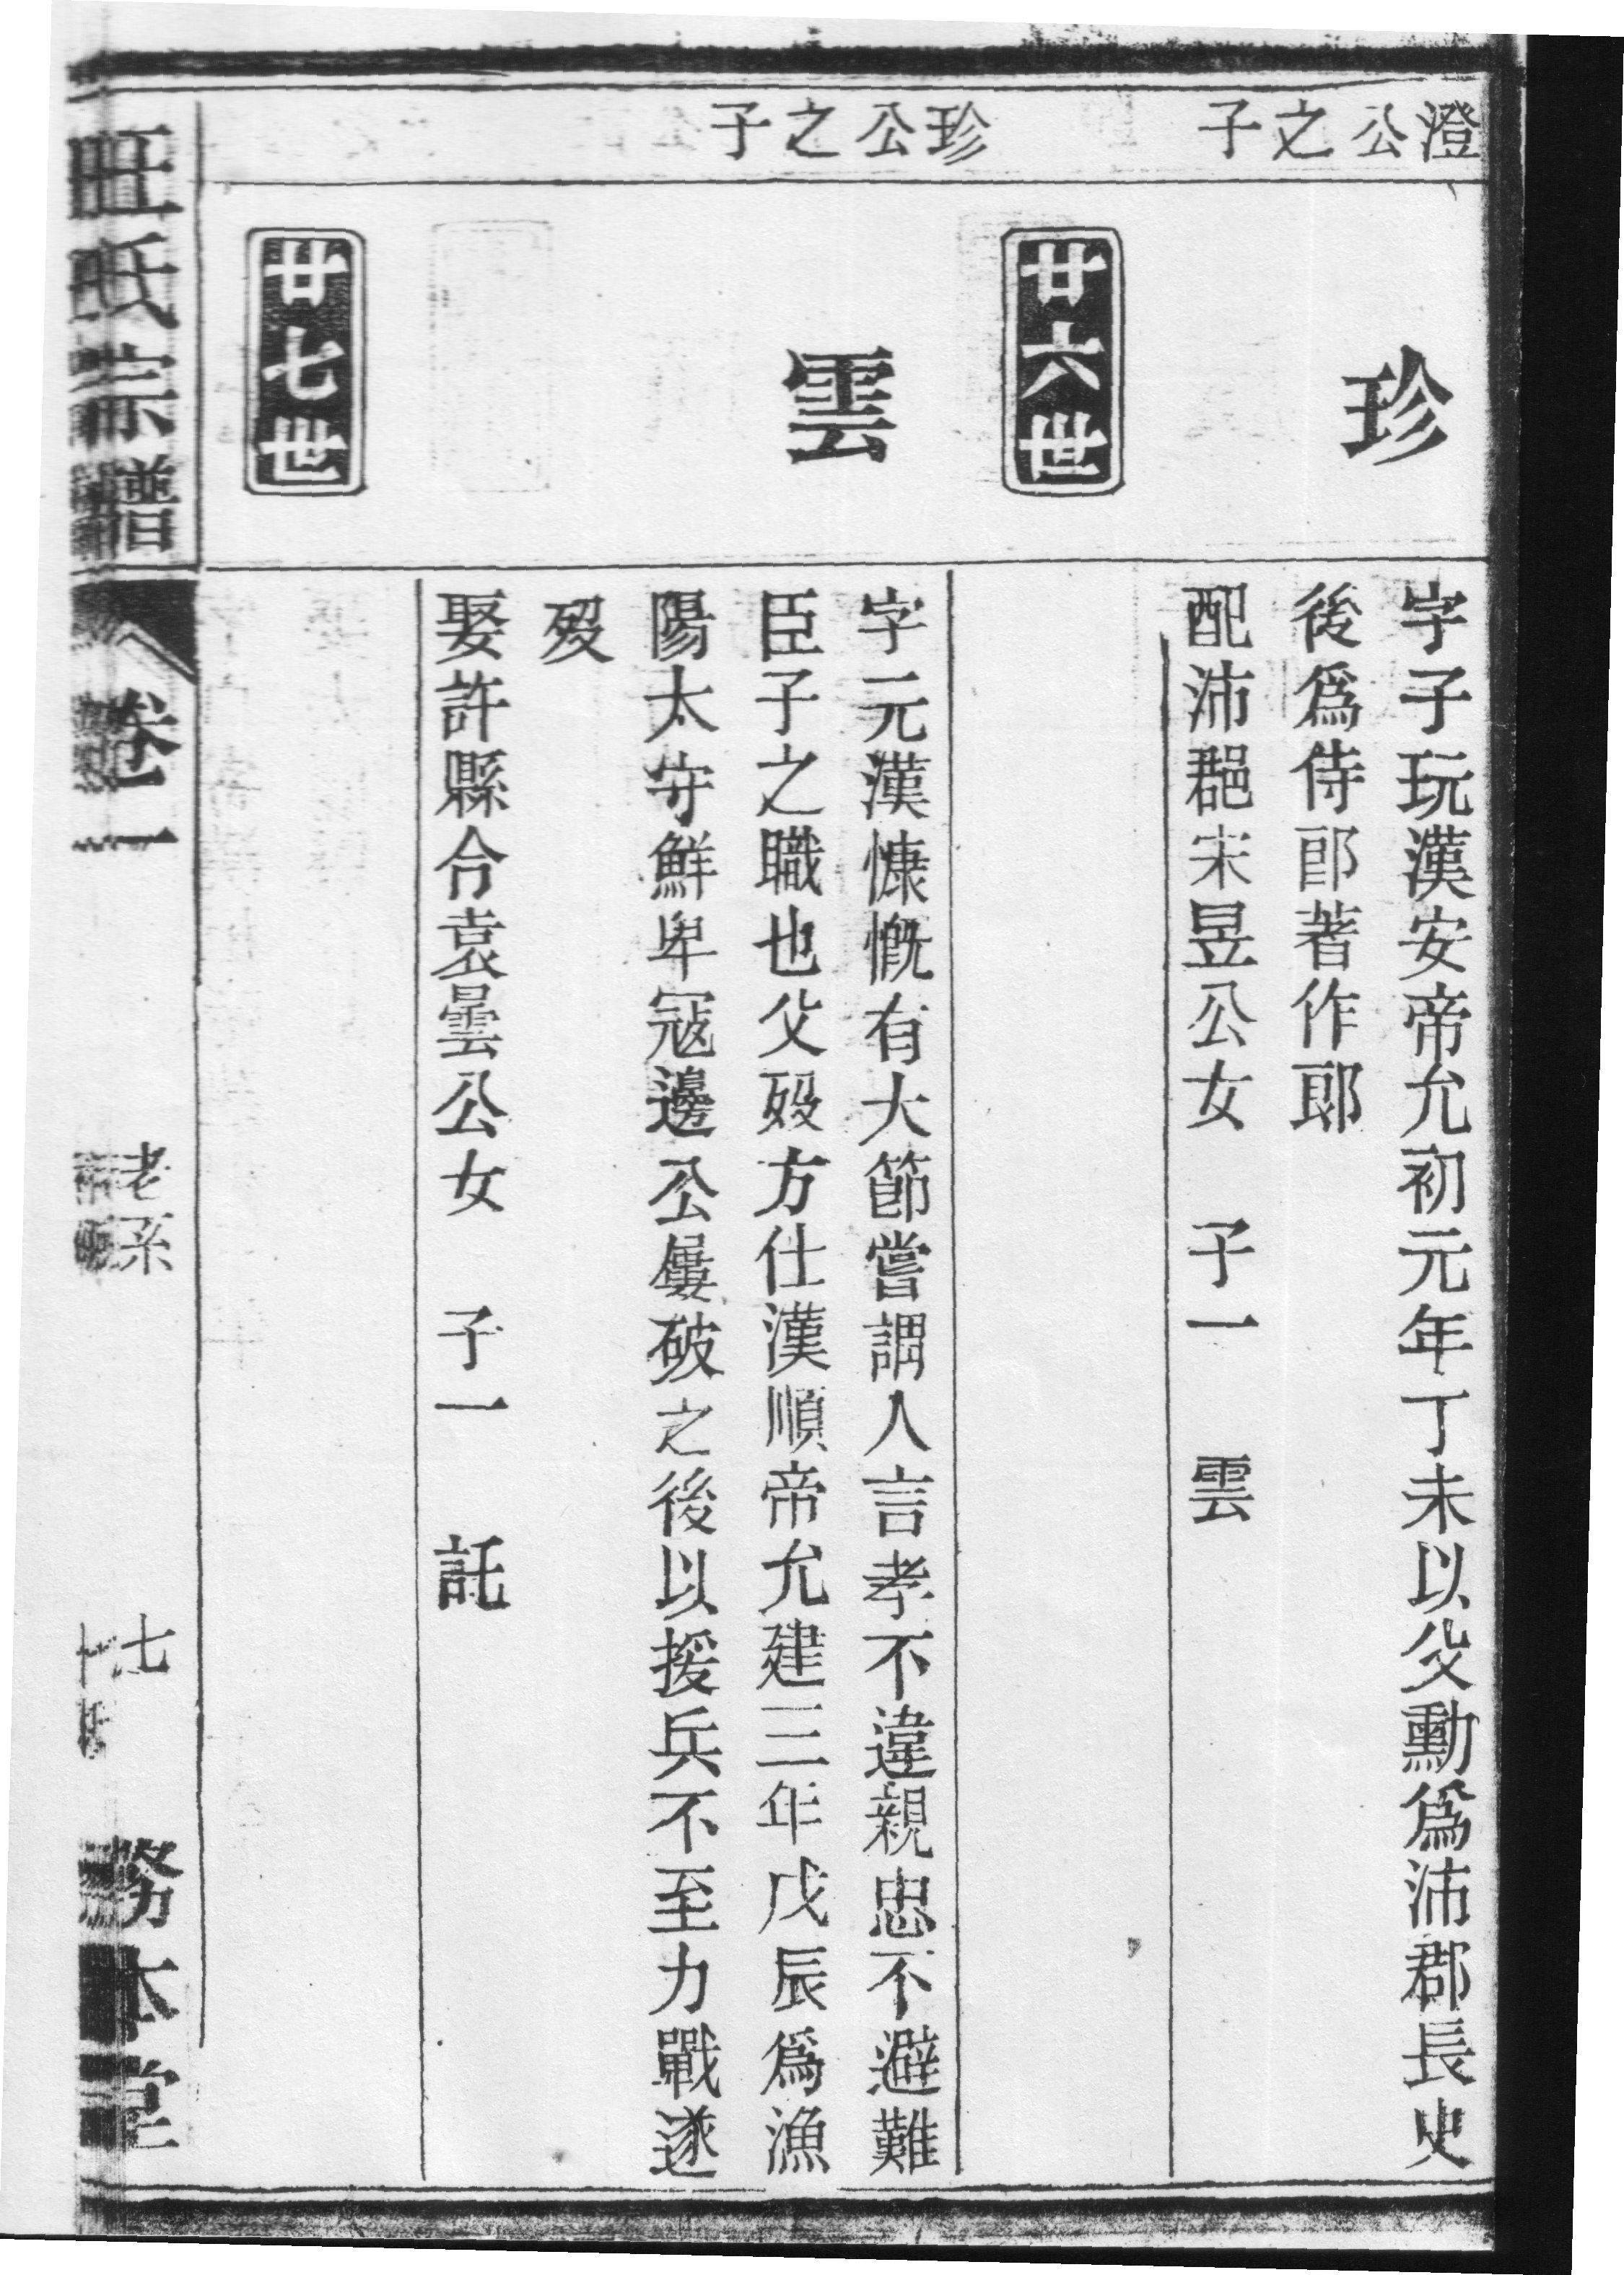 澄公之子
珍
字子玩漢安帝允初元年丁未以父勳爲沛郡長史
後爲侍郎著作郎
配沛郡宋昱公女　子一　雲
廿六世
珍公之子
雲
字元漢慷慨有大節嘗謂人言孝不違親忠不避難
臣子之職也父歿方仕漢順帝允建三年戊辰爲漁
陽太守鮮卑寇邊公屢破之後以援兵不至力戰遂
歿
娶許縣令袁曇公女　子一　託
廿七世
汪氏宗譜　卷一　老系　七　務本堂